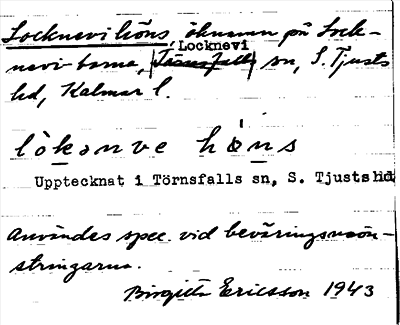 Locknevi höns, öknamn på Lock-
nevi-borna, Locknevi sn, S. Tjusts
hd, Kalmar l.
lòkənve hǿns
Upptecknat i Törnsfalls sn, S. Tjusts hd
Användes spec. vid beväringsmön-
stringarna.
Birgitta Ericsson 1943